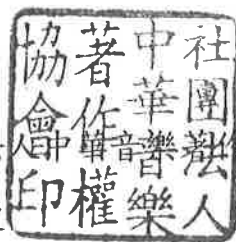 社團法人
中華音樂
著作權
協會印